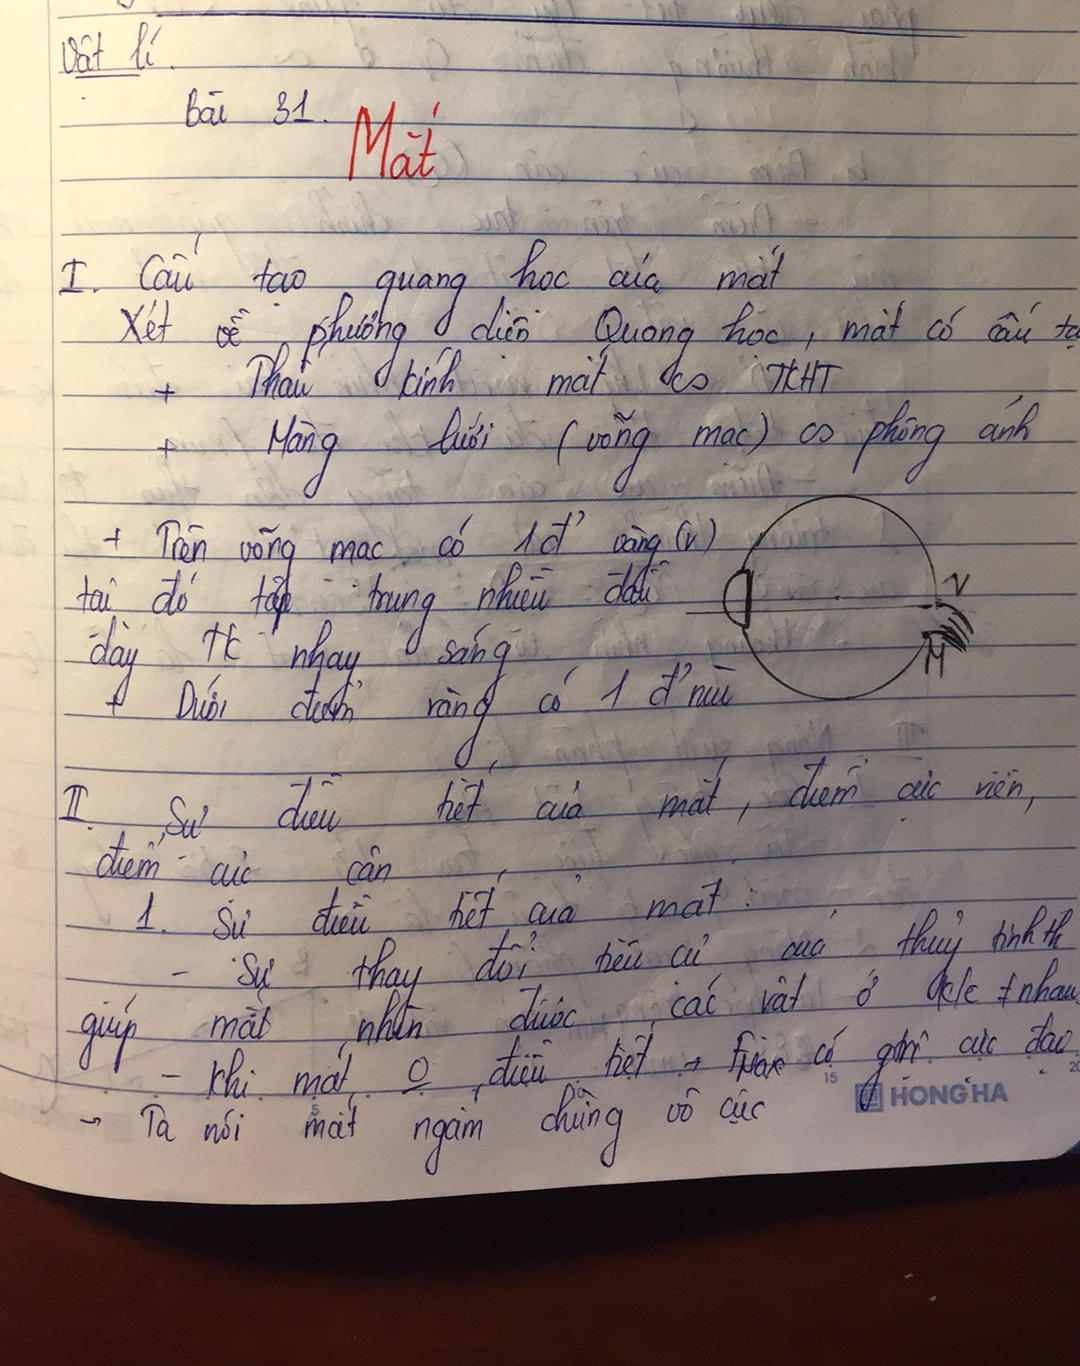 Vật lí.
Bài 31.
Mắt
I. Cấu tạo quang học của mắt
Xét về phương diện Quang học, mắt có cấu tạ
+ Thấu kính mắt ∽ TKHT
+ Màng lưới (võng mạc) ∽ phông ảnh
+ Trên võng mạc có 1 đ' vàng (V)
tại đó tập trung nhiều đầu
dây TK nhạy sáng
+ Dưới điểm vàng có 1 đ' mù
V
M
II. Sự điều tiết của mắt, điểm cực viễn,
điểm cực cận
1. Sự điều tiết của mắt:
- Sự thay đổi tiêu cự của thuỷ tinh th
giúp mắt nhìn được các vật ở k/c ≠ nhau
- Khi mắt O điều tiết → fmax có gtrị cực đại
→ Ta nói mắt ngắm chừng vô cực
5
10
15
20
HONG HA